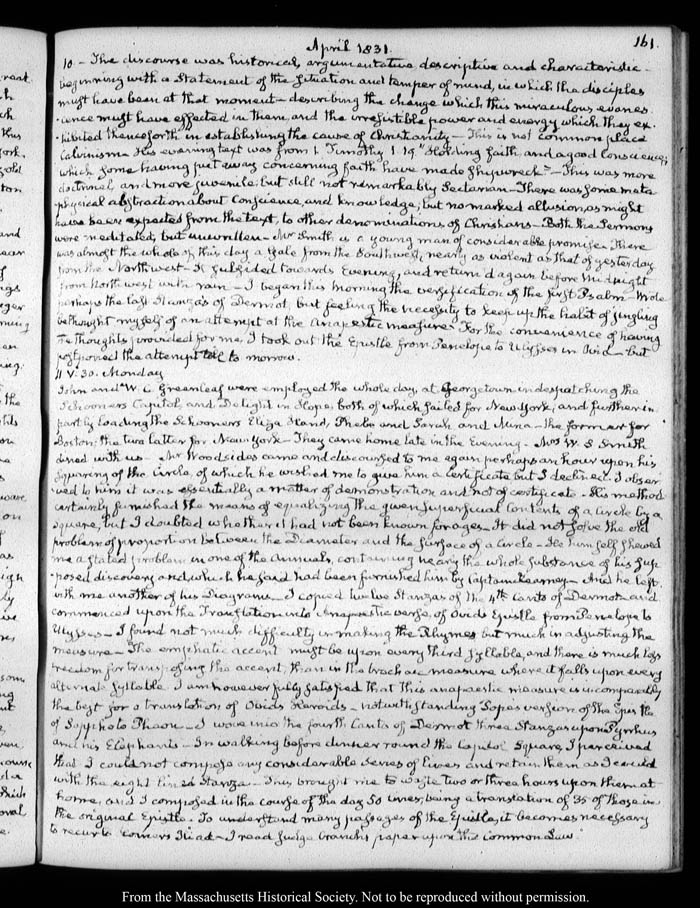 April 1831.
161.
10 - The discourse was historical, argumentative, descriptive and characteristic -
beginning with a Statement of the Situation and temper of mind, in which the disciples
must have been at that moment - describing the change which this miraculous evanes-
-cence must have effected in them, and the irresistible power and energy which they ex-
-hibited thenceforth in establishing the cause of Christianity - This is not common place
Calvinism. His evening text was from 1. Timothy 1. 19 "Holding faith, and a good Conscience;
which some having put away concerning faith have made Shipwreck" - This was more
doctrinal, and more juvenile; but still not remarkably Sectarian - There was some meta-
-physical abstraction about Conscience, and knowledge; but no marked allusion, as might
have been expected from the text, to other denominations of Christians - Both the Sermons
were meditated, but unwritten - Mr Smith is a young man of considerable promise. There
was almost the whole of this day a Gale from the Southwest, nearly as violent as that of yesterday
from the Northwest - It subsided towards Evening, and returned again before Midnight
from Northwest with rain - I began this morning the versification of the first Psalm - Wrote
perhaps the last Stanzas of Dermot, but feeling the necessity to keep up the habit of jingling
bethought myself of an attempt at the Anapestic measures. For the convenience of having
the Thoughts provided for me, I took out the Epistle from Penelope to Ulysses in Ovid - but
postponed the attempt till to morrow.
11. V. 30. Monday
John and W. C. Greenleaf were employed the whole day, at Georgetown in despatching the
Schooners Capitol, and Delight in Hope, both of which sailed for New York; and further in
part by loading the Schooners Eliza Hand, Phebe and Sarah and Mina - the former for
Boston; the two latter for New York - They came home late in the Evening - Mrs W. S. Smith
dined with us - Mr Woodsides came and discoursed to me again perhaps an hour upon his
Squaring of the Circle, of which he wished me to give him a Certificate but I declined. I obser-
-ved to him it was essentially a matter of demonstration and not of certificate - His method
certainly furnished the means of equalizing the given Superficial Contents of a Circle by a
Square, but I doubted whether it had not been known for ages - It did not solve the old
problem of proportion between the Diameter and the Surface of a Circle - He himself shewed
me a stated problem in one of the Annuals, containing nearly the whole Substance of his Sup-
-posed discovery, and which he said had been furnished him by Captain Kearney - And he left
with me another of his Diagrams - I copied twelve Stanzas of the 4th Canto of Dermot and
commenced upon the Translation into Anapestic verse, of Ovids Epistle from Penelope to
Ulysses - I found not much difficulty in making the Rhymes but much in adjusting the
measure - The emphatic accent must be upon every third Syllable, and there is much less
freedom for transposing the accent, than in the measure where it falls upon every
alternate Syllable. I am however fully satisfied that this anapaestic measure is incomparably
the best for a translation of Ovids Heroids - notwithstanding Popes version of the Epistle
of Sappho to Phaon - I wove into the fourth Canto of Dermot three Stanzas upon Pyrrhus
and his Elephants - In walking before dinner round the Capitol Square, I perceived
that I could not compose any considerable Series of lines and retain them as I could
with the eight lined Stanza - This brought me to waste two or three hours upon them at
home, and I composed in the course of the day 50 lines, being a translation of 35 of those in
the original Epistle. To understand many passages of the Epistles, it becomes necessary
to recur to Homers Iliad - I read Judge Cranch's paper upon the Common Law
From the Massachusetts Historical Society. Not to be reproduced without permission.